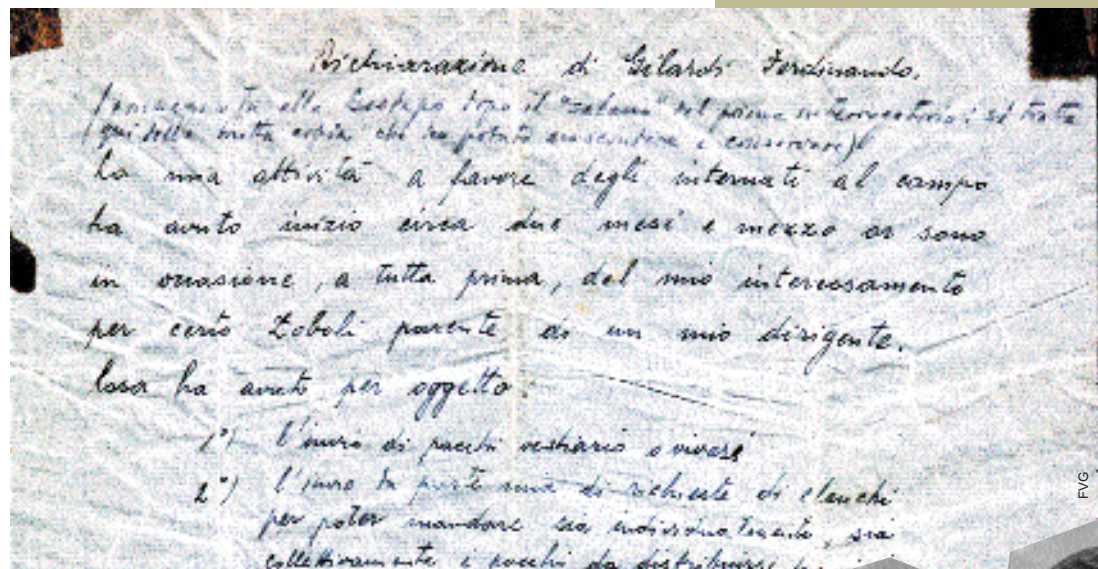 Dichiarazione di Gilardi Ferdinando.
(consegnata alla Gestapo dopo il "salami" del primo interrogatorio: si tratta
qui della brutta copia che ho potuto nascondere e conservare)
La mia attività a favore degli internati al campo
ha avuto inizio circa due mesi e mezzo or sono
in occasione, a tutta prima, del mio interessamento
per certo Zoboli parente di un mio dirigente.
Essa ha avuto per oggetto:
1°) l'invio di pacchi vestiario o viveri
2°) l'invio da parte mia di richieste di elenchi
per poter mandare sia individualmente, sia
collettivamente i pacchi da distribuirsi
FVG